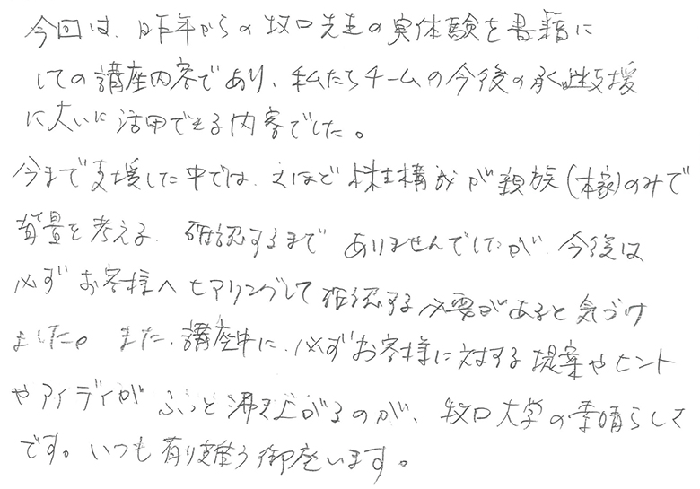 今回は、昨年からの牧口先生の実体験を書籍に
しての講座内容であり、私たちチームの今後の承継支援
に大いに活用できる内容でした。
今まで支援した中では、ほど株主構成が親族(本家)のみで
背景を考える、確認するまでありませんでしたが、今後は
必ずお客様へヒアリングして確認する必要があると気づけ
ました。また、講座中に、必ずお客様に対する提案やヒント
やアイディアがふっと沸き上がるのが、牧口大学の素晴らしさ
です。いつも有り難う御座います。